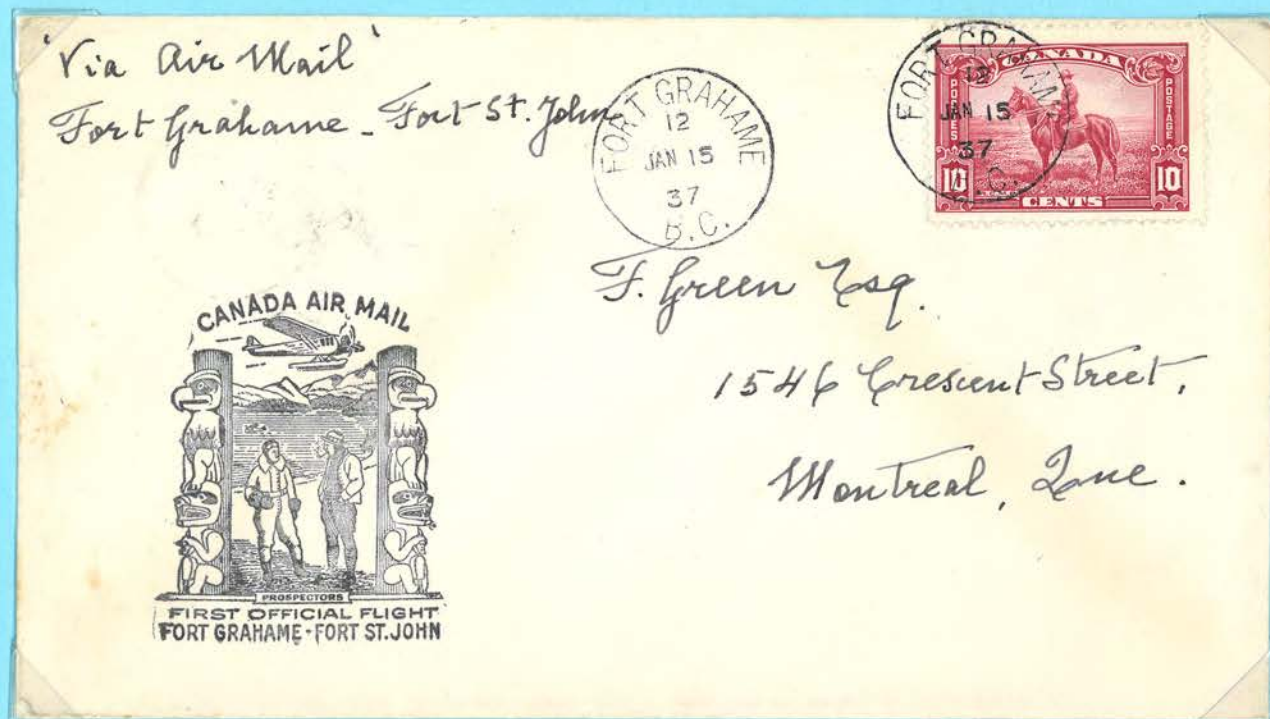 'Via Air Mail'
Fort Grahame - Fort St. John
FORT GRAHAME
12
JAN 15
37
B.C.
FORT GRAHAME
12
JAN 15
37
B.C.
CANADA
POSTES
POSTAGE
10
10
CENTS
F. Green Esq.
1546 Crescent Street,
Montreal, Que.
CANADA AIR MAIL
PROSPECTORS
FIRST OFFICIAL FLIGHT
FORT GRAHAME - FORT ST. JOHN